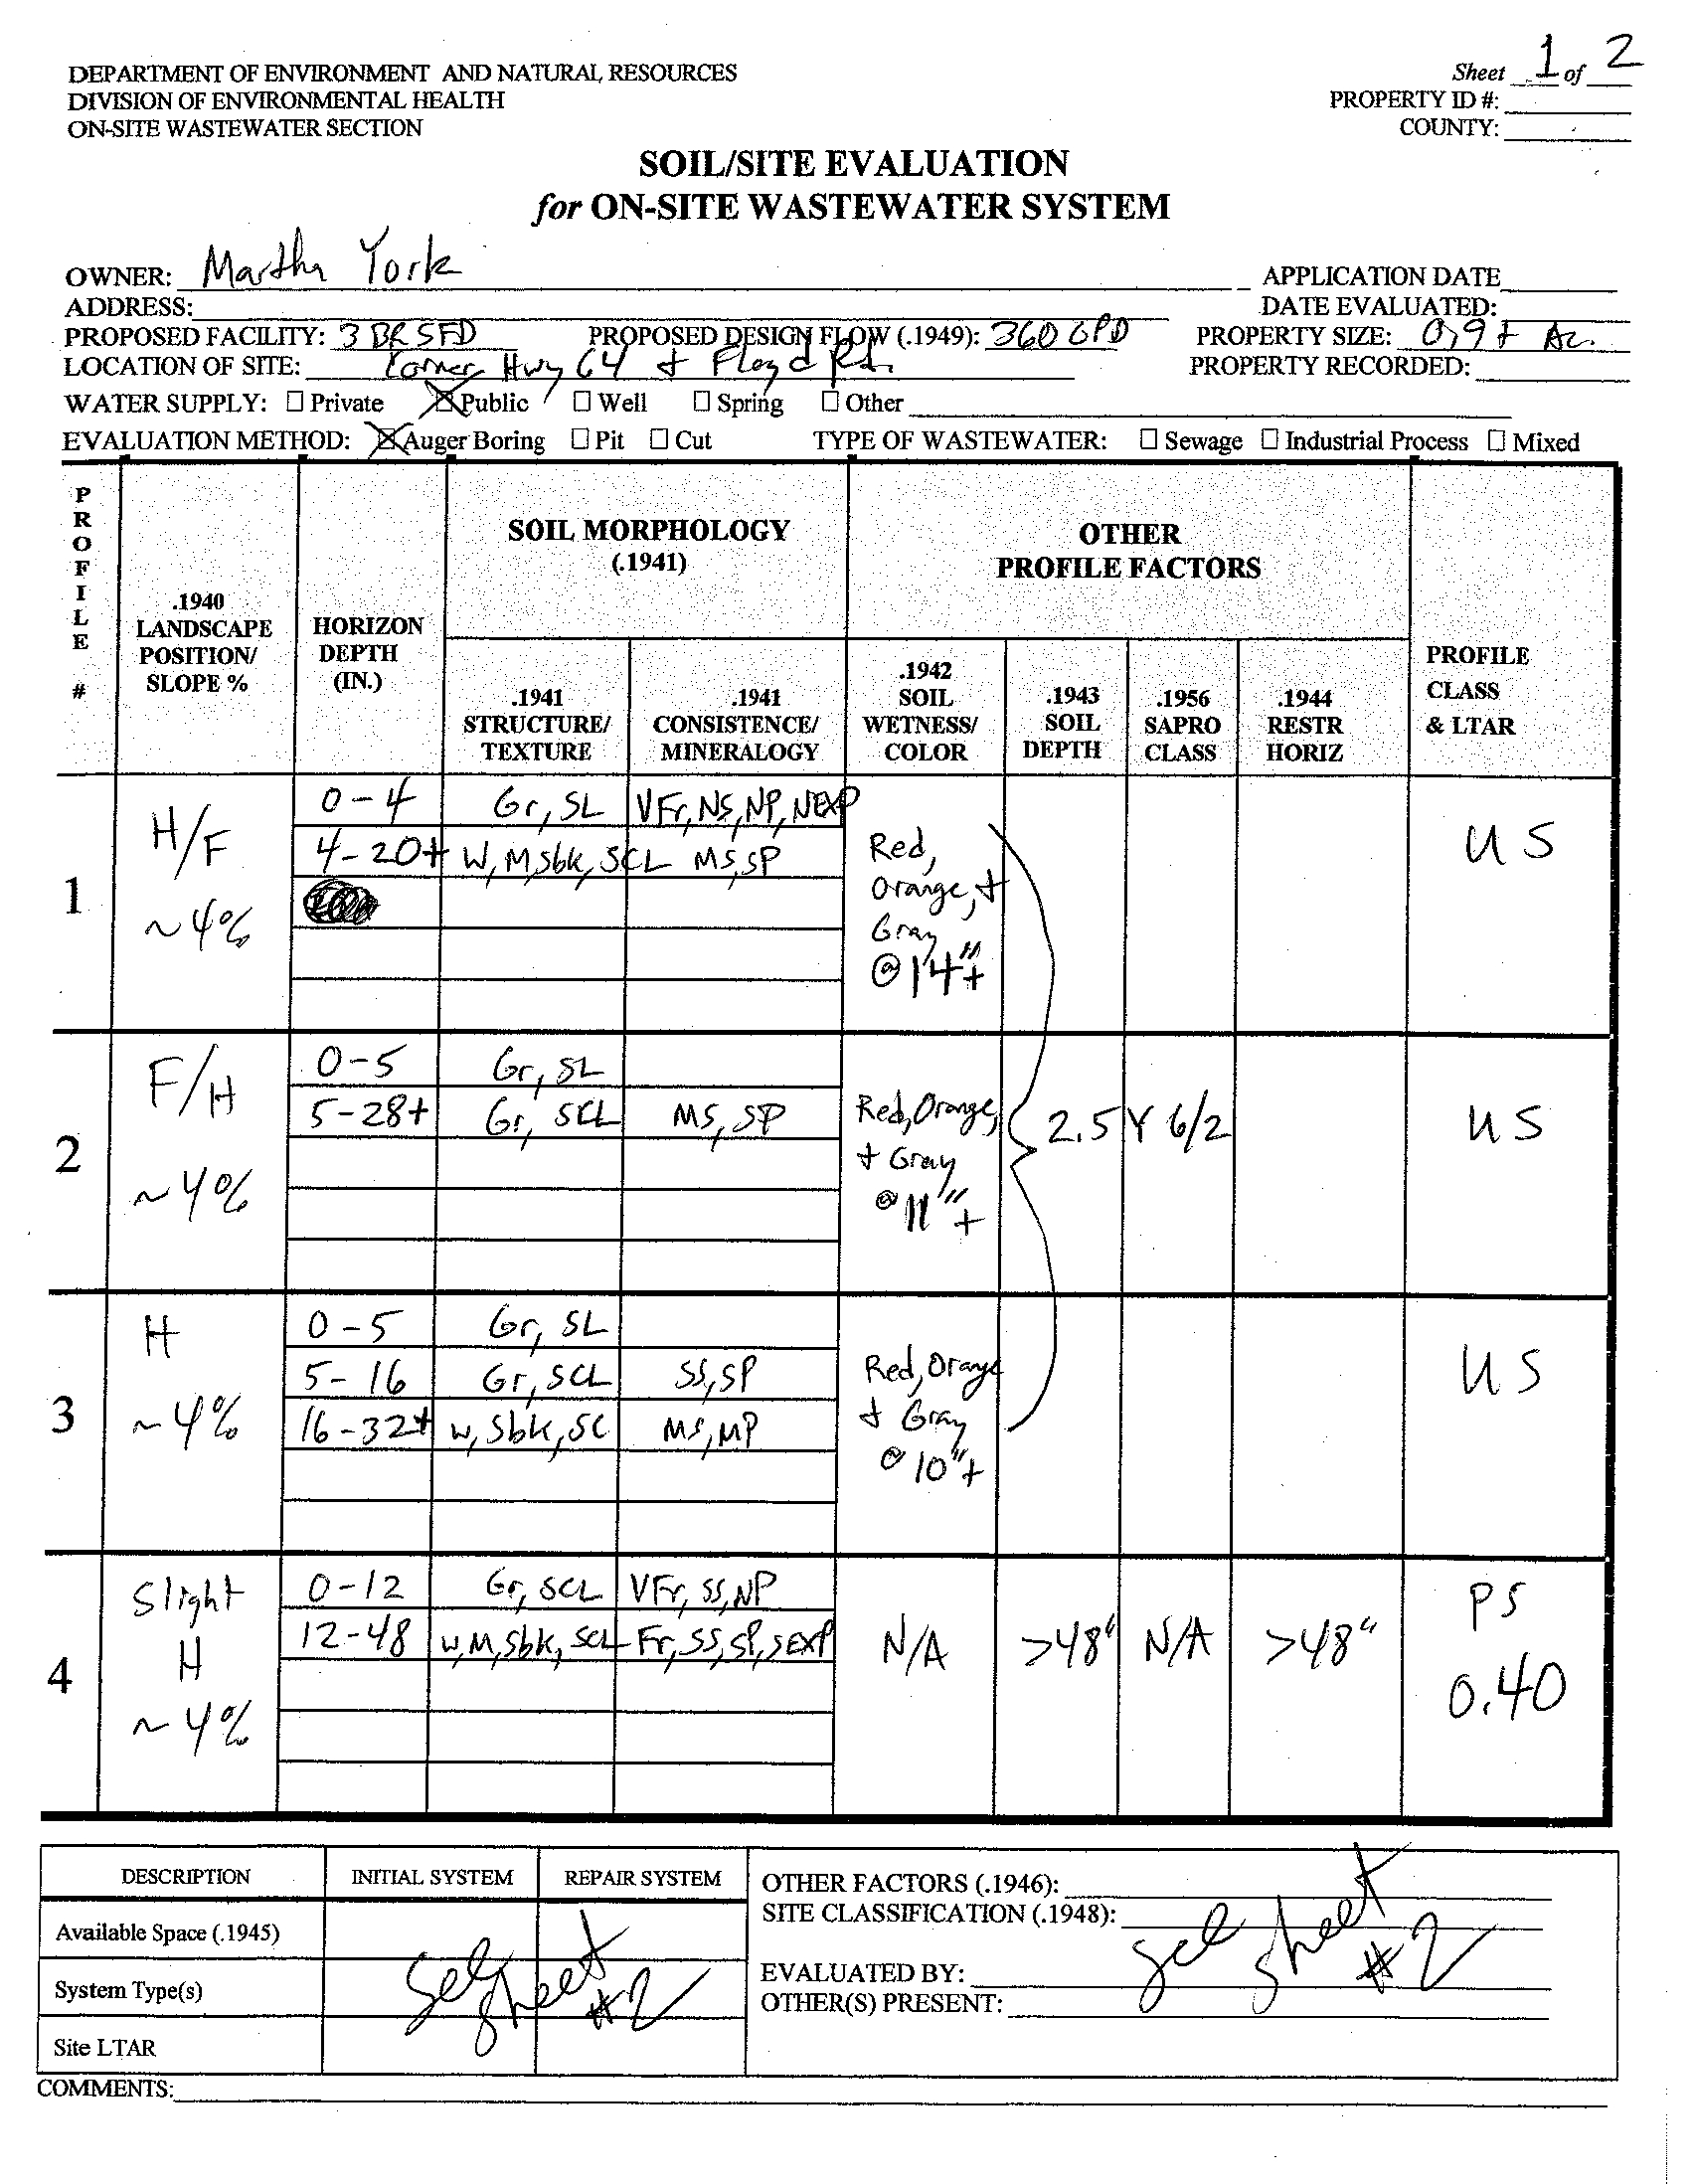 Sheet 1 of 2
DEPARTMENT OF ENVIRONMENT AND NATURAL RESOURCES
DIVISION OF ENVIRONMENTAL HEALTH
ON-SITE WASTEWATER SECTION
PROPERTY ID #:
COUNTY:
SOIL/SITE EVALUATION
for ON-SITE WASTEWATER SYSTEM
OWNER: Martha York APPLICATION DATE
ADDRESS: DATE EVALUATED:
PROPOSED FACILITY: 3 BR SFD PROPOSED DESIGN FLOW (.1949): 360 GPD PROPERTY SIZE: 0.9+ Ac.
LOCATION OF SITE: Corner Hwy 64 + Floyd Rd. PROPERTY RECORDED:
WATER SUPPLY: ☐ Private ☒ Public ☐ Well ☐ Spring ☐ Other
EVALUATION METHOD: ☒ Auger Boring ☐ Pit ☐ Cut TYPE OF WASTEWATER: ☐ Sewage ☐ Industrial Process ☐ Mixed
PROFILE #
.1940 LANDSCAPE POSITION/ SLOPE %
HORIZON DEPTH (IN.)
SOIL MORPHOLOGY (.1941)
.1941 STRUCTURE/ TEXTURE
.1941 CONSISTENCE/ MINERALOGY
OTHER PROFILE FACTORS
.1942 SOIL WETNESS/ COLOR
.1943 SOIL DEPTH
.1956 SAPRO CLASS
.1944 RESTR HORIZ
PROFILE CLASS & LTAR
1
H/F ~4%
0-4 Gr, SL VFr, NS, NP, NEXP
4-20+ W, M, Sbk, SCL MS, SP
Red, Orange, + Gray @ 14"+
US
2
F/H ~4%
0-5 Gr, SL
5-28+ Gr, SCL MS, SP
Red, Orange, + Gray @ 11"+
2.5 Y 6/2
US
3
H ~4%
0-5 Gr, SL
5-16 Gr, SCL SS, SP
16-32+ W, Sbk, SC MS, MP
Red, Orange + Gray @ 10"+
US
4
Slight H ~4%
0-12 Gr, SCL VFr, SS, NP
12-48 W, M, Sbk, SCL Fr, SS, SP, SEXP
N/A >48" N/A >48"
PS 0.40
DESCRIPTION INITIAL SYSTEM REPAIR SYSTEM
Available Space (.1945)
System Type(s)
Site LTAR
See sheet #2
OTHER FACTORS (.1946):
SITE CLASSIFICATION (.1948):
EVALUATED BY:
OTHER(S) PRESENT:
See sheet #2
COMMENTS: